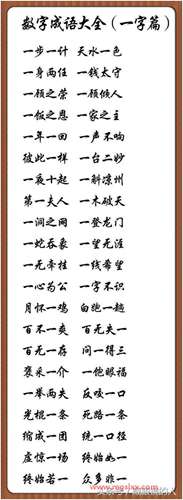 数字成语大全（一字篇）
一步一计 天水一色
一身两任 一钱太守
一顾之荣 一顾倾人
一饭之恩 一家之主
年一年一回 一声不响
彼此一样 一台二妙
一夜十起 一斛凉州
第一夫人 一木破天
一涧之网 一登龙门
一蛇吞象 一望无涯
一无牵挂 一线希望
一心为公 一字不识
月怀一鸡 白绝一越
百不一爽 百无失一
百无一存 问一得三
褒采一介 一饱眼福
一举两失 反咬一口
光棍一条 死路一条
缩成一团 统一口径
虚惊一场 终始如一
终始若一 众多非一